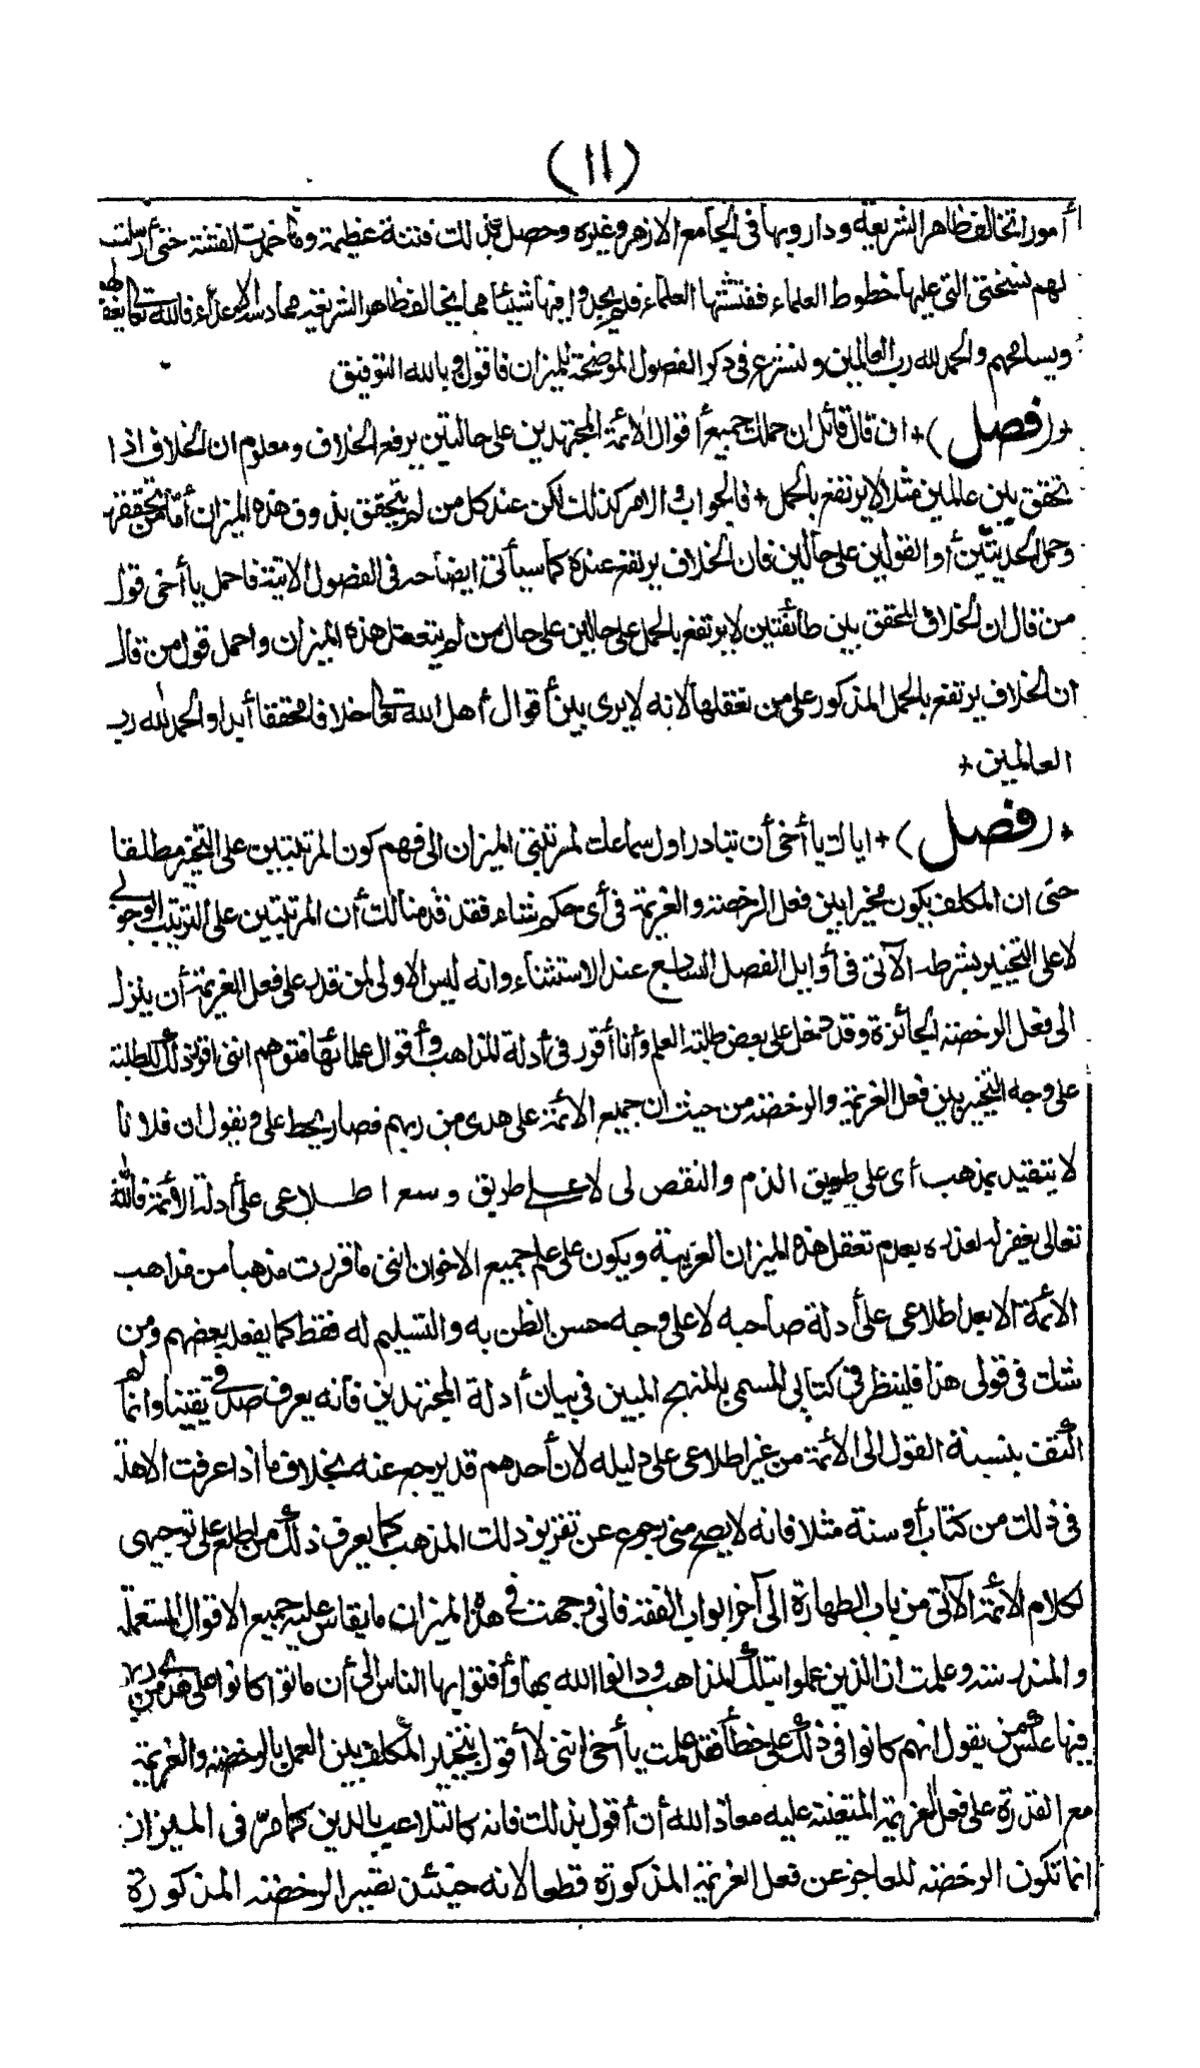 (١١)
أمورا تخالف ظاهر الشريعة وداروا بها في الجامع الازهر وغيره وحصل بذلك فتنة عظيمة وما خمدت الفتنة حتى أرسلت
لهم نسختي التي عليها خطوط العلماء ففتشها العلماء فلم يجدوا فيها شيئا مما يخالف ظاهر الشريعة مما دسه الاعداء فالله تعالى يغفر لهم
ويسامحهم والحمد لله رب العالمين ولنشرع في ذكر الفصول الموضحة للميزان فأقول وبالله التوفيق
+(فصل)+ ان قال قائل ان حملك جميع أقوال الائمة المجتهدين على حالتين يرفع الخلاف ومعلوم ان الخلاف اذا
تحقق بين عالمين مثلا لا يرتفع بالحمل + فالجواب الامر كذلك لكن عند كل من لم يتحقق بذوق هذه الميزان أما من تحقق بها
وحمل الحديثين أو القولين على حالين فان الخلاف يرتفع عنده كما سيأتي ايضاحه في الفصول الآتية فاحمل يا أخي قول
من قال ان الخلاف المحقق بين طائفتين لا يرتفع بالحمل على حالين على حال من لم يتعقل هذه الميزان واحمل قول من قال
ان الخلاف يرتفع بالحمل المذكور على من تعقلها لانه لا يرى بين أقوال أهل الله تعالى خلافا محققا أبدا والحمد لله رب
العالمين +
+(فصل)+ اياك يا أخي أن تبادر اول سماعك لمرتبتي الميزان الى فهم كون المرتبتين على التخيير مطلقا
حتى ان المكلف يكون مخيرا بين فعل الرخصة والعزيمة في أي حكم شاء فقد قدمنا لك أن المرتبتين على الترتيب الوجوبي
لا على التخيير بشرطه الآتي في أوايل الفصل السابع عند الاستثناء وانه ليس الاولى لمن قدر على فعل العزيمة أن ينزل
الى فعل الرخصة الجائزة وقد دخل علي بعض طلبة العلم وأنا أقرر في أدلة المذاهب وأقوال علمائها فتوهم انني اقرر ذلك للطلبة
على وجه التخيير بين فعل العزيمة والرخصة من حيث ان جميع الائمة على هدى من ربهم فصار يحط علي ويقول ان فلانا
لا يتقيد بمذهب أى على طريق الذم والنقص لى لا على طريق وسع اطلاعى على أدلة الائمة فالله
تعالى يغفر له لعذره بعدم تعقل هذه الميزان الغريبة ويكون على علم جميع الاخوان انني ما قررت مذهبا من مذاهب
الائمة الا بعد اطلاعي على أدلة صاحبه لا على وجه حسن الظن به والتسليم له فقط كما يفعله بعضهم ومن
شك في قولى هذا فلينظر في كتابي المسمى بالمنهج المبين في بيان أدلة المجتهدين فانه يعرف صدقي يقينا وانما لم
اكتف بنسبة القول الى الائمة من غير اطلاعى على دليله لان أحدهم قد يرجع عنه بخلاف ما اذا عرفت الادلة
في ذلك من كتاب أو سنة مثلا فانه لا يصح مني رجوع عن تقرير ذلك المذهب كما يعرف ذلك من اطلع على توجيهى
لكلام الائمة الآتي من باب الطهارة الى آخر ابواب الفقه فاني وجهت في هذه الميزان ما يقاس عليه جميع الاقوال المستعملة
والمندرسة وعلمت ان الذين عملوا بتلك المذاهب ودانوا الله بها وأفتوا بها الناس الى أن ماتوا كانوا على هدى من ربهم
فيها عكس من يقول انهم كانوا في ذلك على خطأ فقد علمت يا أخي انني لا أقول بتخيير المكلف بين العمل بالرخصة والعزيمة
مع القدرة على فعل العزيمة المتعينة عليه معاذ الله أن أقول بذلك فانه كالتلاعب بالدين كما مرّ فى الميزان
انما تكون الرخصة للعاجز عن فعل العزيمة المذكورة قطعا لانه حينئذ تصير الرخصة المذكورة